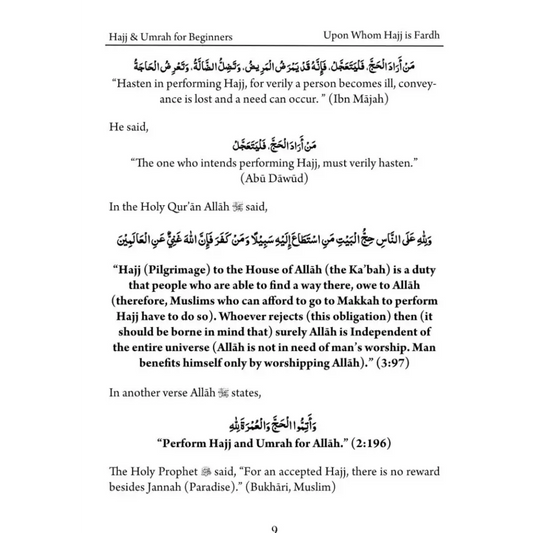 Hajj & Umrah for Beginners
Upon Whom Hajj is Fardh
مَنْ أَرَادَ الْحَجَّ، فَلْيَتَعَجَّلْ، فَإِنَّهُ قَدْ يَمْرَضُ الْمَرِيضُ، وَتَضِلُّ الضَّالَّةُ، وَتَعْرِضُ الْحَاجَةُ
“Hasten in performing Hajj, for verily a person becomes ill, convey-
ance is lost and a need can occur. ” (Ibn Mājah)
He said,
مَنْ أَرَادَ الْحَجَّ، فَلْيَتَعَجَّلْ
“The one who intends performing Hajj, must verily hasten.”
(Abū Dāwūd)
In the Holy Qur’ān Allāh ﷻ said,
وَلِلّٰهِ عَلَى النَّاسِ حِجُّ الْبَيْتِ مَنِ اسْتَطَاعَ إِلَيْهِ سَبِيْلًا وَمَنْ كَفَرَ فَإِنَّ اللّٰهَ غَنِيٌّ عَنِ الْعَالَمِيْنَ
“Hajj (Pilgrimage) to the House of Allāh (the Ka’bah) is a duty
that people who are able to find a way there, owe to Allāh
(therefore, Muslims who can afford to go to Makkah to perform
Hajj have to do so). Whoever rejects (this obligation) then (it
should be borne in mind that) surely Allāh is Independent of
the entire universe (Allāh is not in need of man’s worship. Man
benefits himself only by worshipping Allāh).” (3:97)
In another verse Allāh ﷻ states,
وَأَتِمُّوا الْحَجَّ وَالْعُمْرَةَ لِلّٰهِ
“Perform Hajj and Umrah for Allāh.” (2:196)
The Holy Prophet ﷺ said, “For an accepted Hajj, there is no reward
besides Jannah (Paradise).” (Bukhāri, Muslim)
9